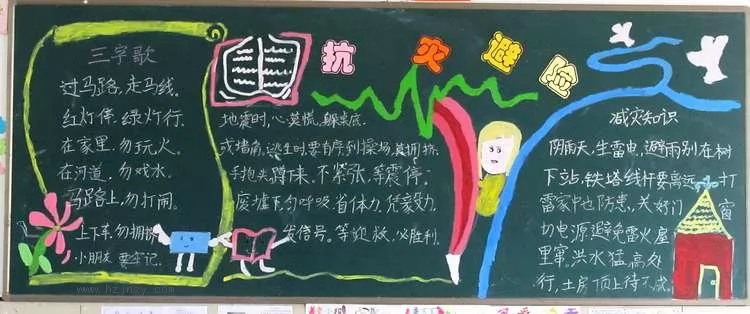 三字歌
过马路，走马线。
红灯停，绿灯行。
在家里，勿玩火。
在河道，勿戏水。
马路上，勿打闹。
上下车，勿拥挤
小朋友 要牢记。
www.hzjnzy.com
抗灾避险
地震时，心莫慌，躲桌底
或墙角，逃生时，要有序到操场，莫拥挤，
手抱头 蹲下来。不紧张，等震停，
废墟下，勿呼吸，省体力，凭家致力，
发信号。等效救，必胜利。
减灾知识
阴雨天，生雷电，避雨别在树
下站，铁塔线杆要离远，打
雷家中也防患，关好门窗
切电源，避免雷火屋
里窜。洪水猛，高处
行，土房顶上待不成